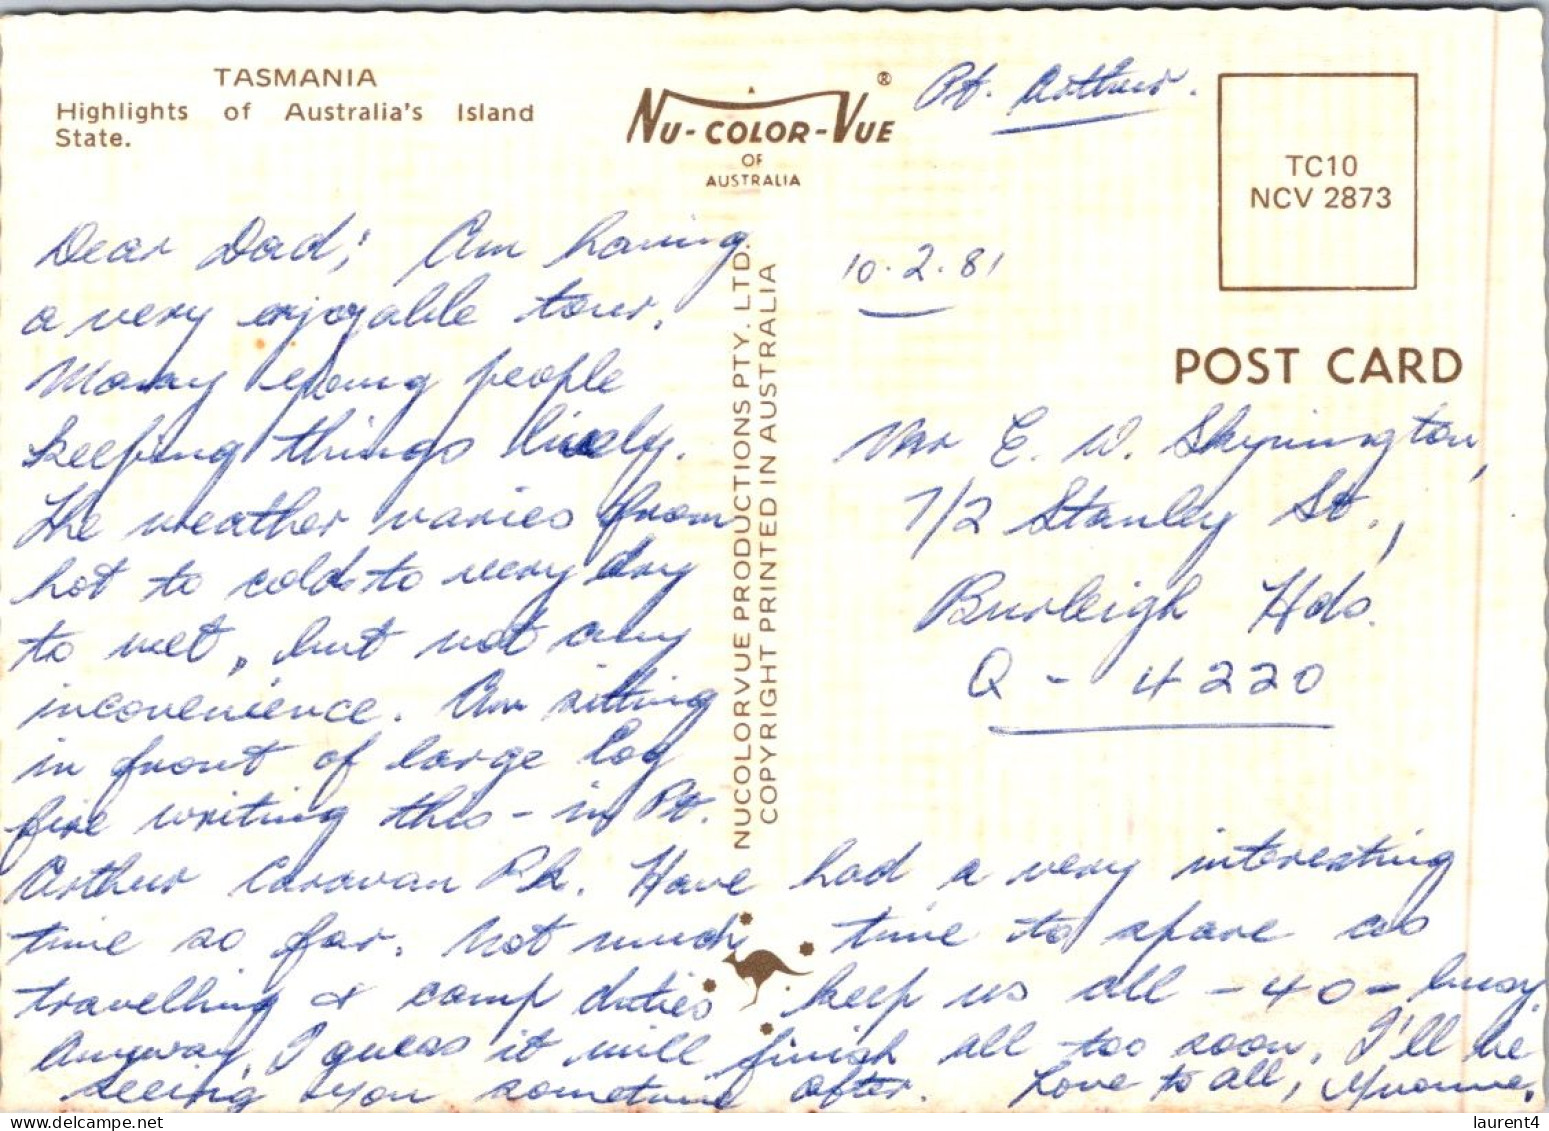 TASMANIA
Highlights of Australia's Island
State.
NU-COLOR-VUE ®
OF
AUSTRALIA
Pt. Arthur.
TC10
NCV 2873
POST CARD
10.2.81
Dear Dad; Am having
a very enjoyable tour.
Many young people
keeping things lively.
The weather varies from
hot to cold to very dry
to wet, but not any
inconvenience. Am sitting
in front of large log
fire writing this - in Pt.
Arthur Caravan Pk. Have had a very interesting
time so far. Not much time to spare as
travelling & camp duties keep us all - 40 - busy.
Anyway, I guess it will finish all too soon. I'll be
seeing you sometime after. Love to all, Yvonne.
NUCOLORVUE PRODUCTIONS PTY. LTD.
COPYRIGHT PRINTED IN AUSTRALIA
Mr E. W. Skynington,
7/2 Stanley St.,
Burleigh Hds.
Q - 4220
laurent4